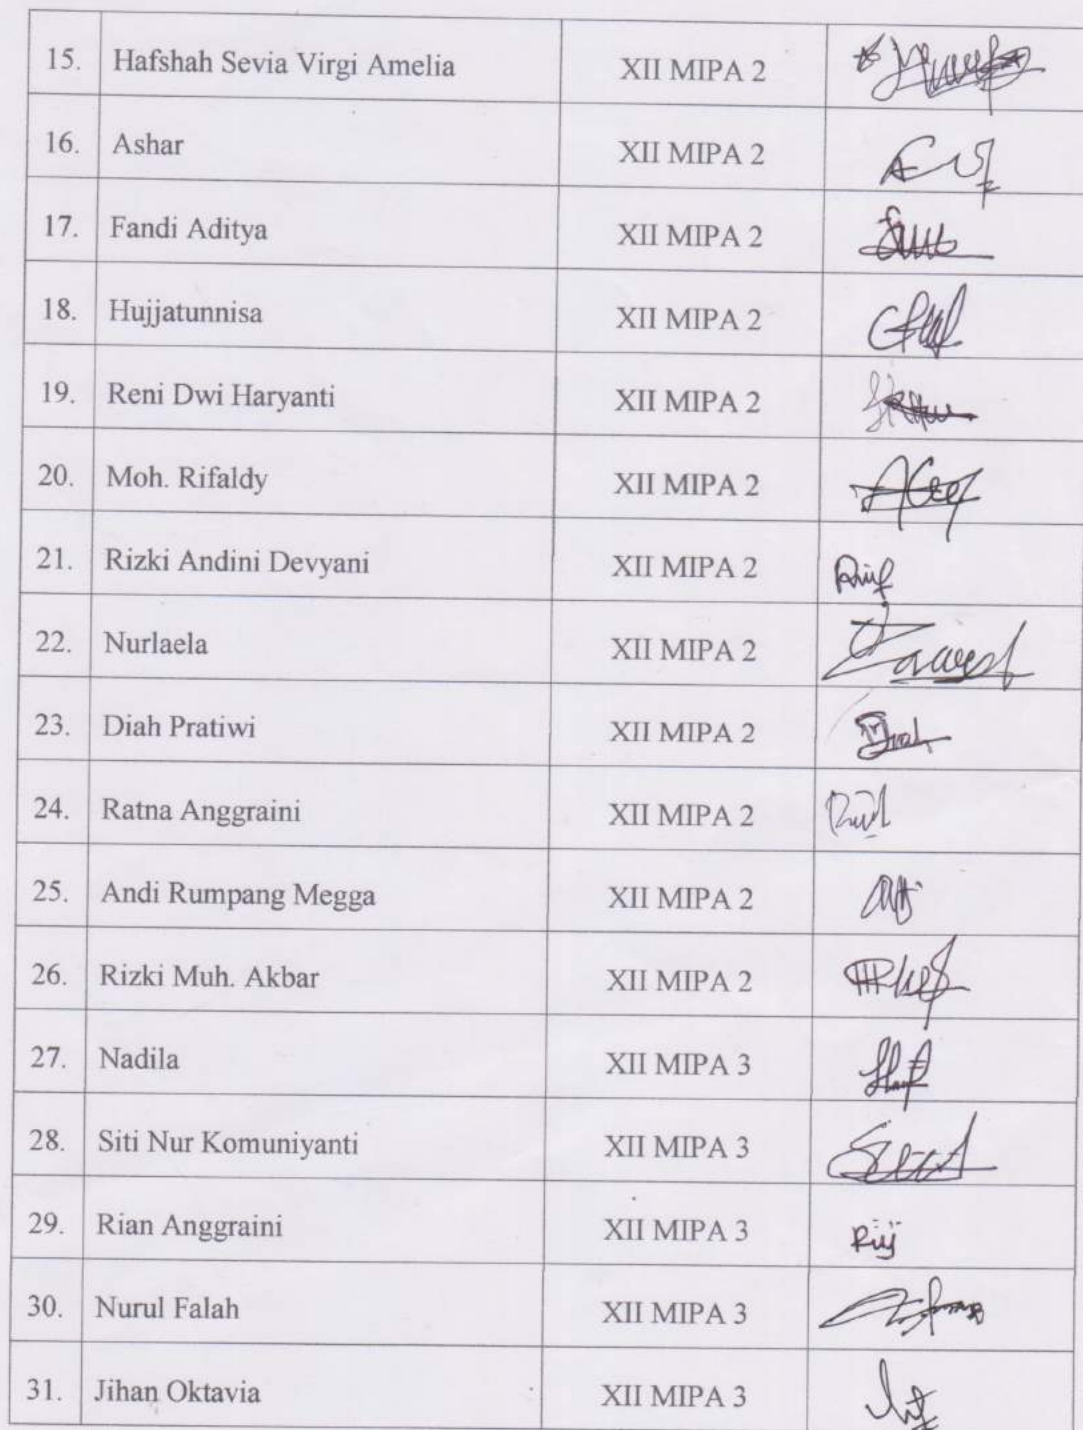 15. Hafshah Sevia Virgi Amelia XII MIPA 2
16. Ashar XII MIPA 2
17. Fandi Aditya XII MIPA 2
18. Hujjatunnisa XII MIPA 2
19. Reni Dwi Haryanti XII MIPA 2
20. Moh. Rifaldy XII MIPA 2
21. Rizki Andini Devyani XII MIPA 2
22. Nurlaela XII MIPA 2
23. Diah Pratiwi XII MIPA 2
24. Ratna Anggraini XII MIPA 2
25. Andi Rumpang Megga XII MIPA 2
26. Rizki Muh. Akbar XII MIPA 2
27. Nadila XII MIPA 3
28. Siti Nur Komuniyanti XII MIPA 3
29. Rian Anggraini XII MIPA 3
30. Nurul Falah XII MIPA 3
31. Jihan Oktavia XII MIPA 3